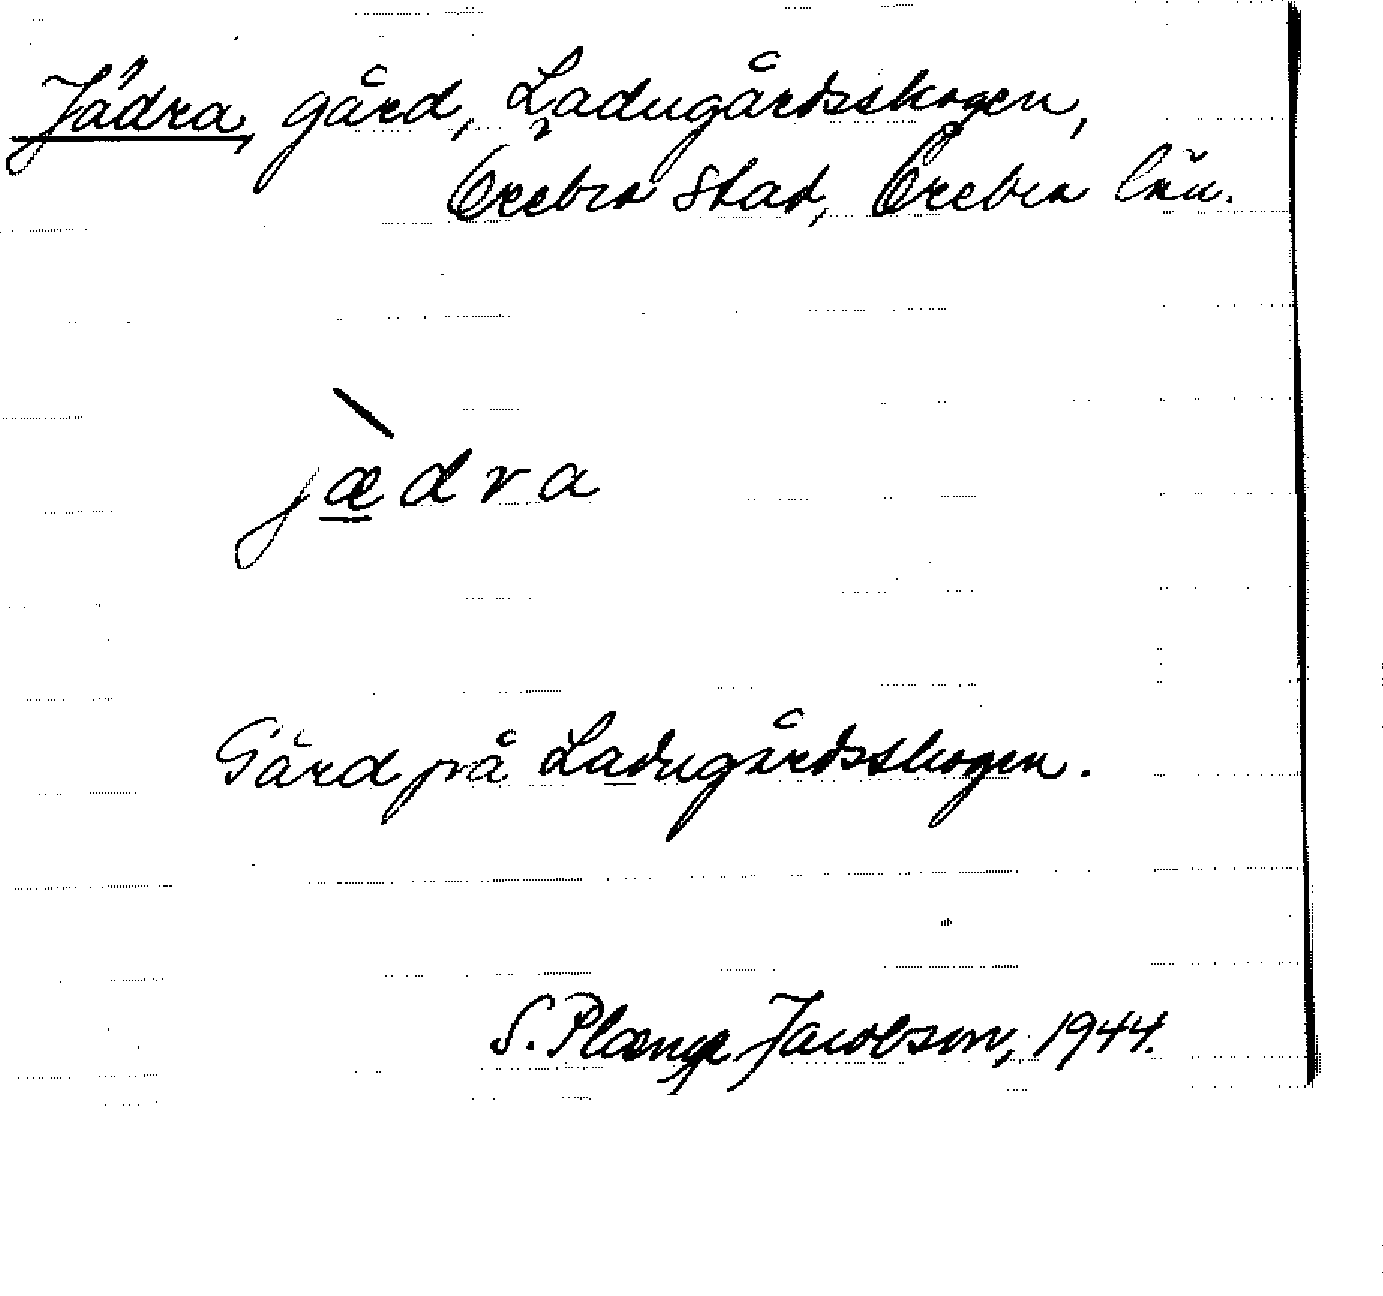 Jädra, gård, Ladugårdsskogen,
Örebro stad, Örebro län.
jædra
Gård på Ladugårdsskogen.
S. Plænge Jacobson, 1944.